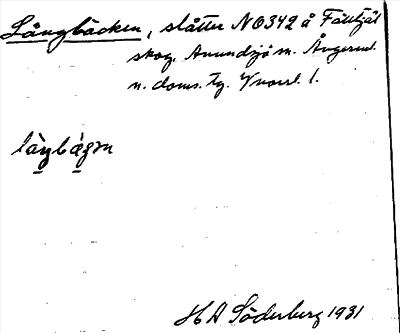 Långbäcken, slåtter NO342 å Fälltjäl
skog. Anundsjö sn. Ångerml.
n. doms. tg. Yvarrl 1.
làŋbæ̀gɜn
H A Söderberg 1931